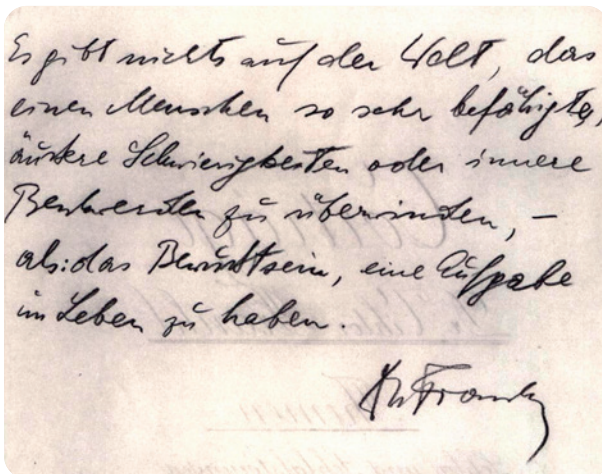 Es gibt nichts auf der Welt, das
einen Menschen so sehr befähigte,
äußere Schwierigkeiten oder innere
Beschwerden zu überwinden, –
als: das Bewußtsein, eine Aufgabe
im Leben zu haben.